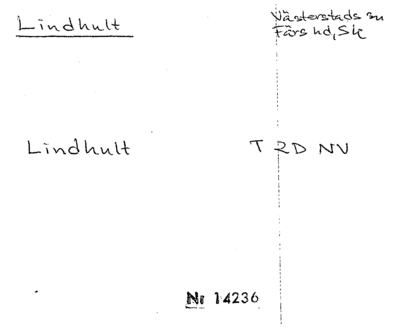 Lindhult
Västerstads sn
Färs hd, Sk
Lindhult T 2D NV
Nr 14236